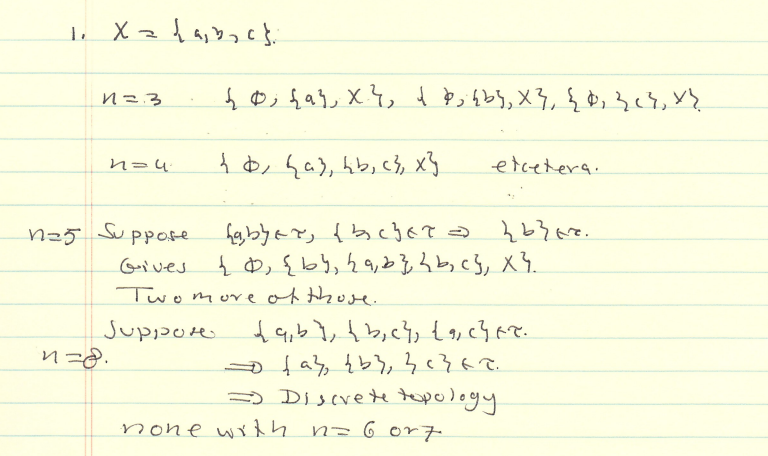 1. X = {a,b,c}.
n=3 {Φ, {a}, X}, {Φ, {b}, X}, {Φ, {c}, X}
n=4 {Φ, {a}, {b,c}, X} etcetera.
n=5 Suppose {a,b}∈τ, {b,c}∈τ ⇒ {b}∈τ.
Gives {Φ, {b}, {a,b}, {b,c}, X}.
Two more of those.
Suppose {a,b}, {b,c}, {a,c}∈τ.
n=8. ⇒ {a}, {b}, {c}∈τ.
⇒ Discrete topology
none with n=6 or 7